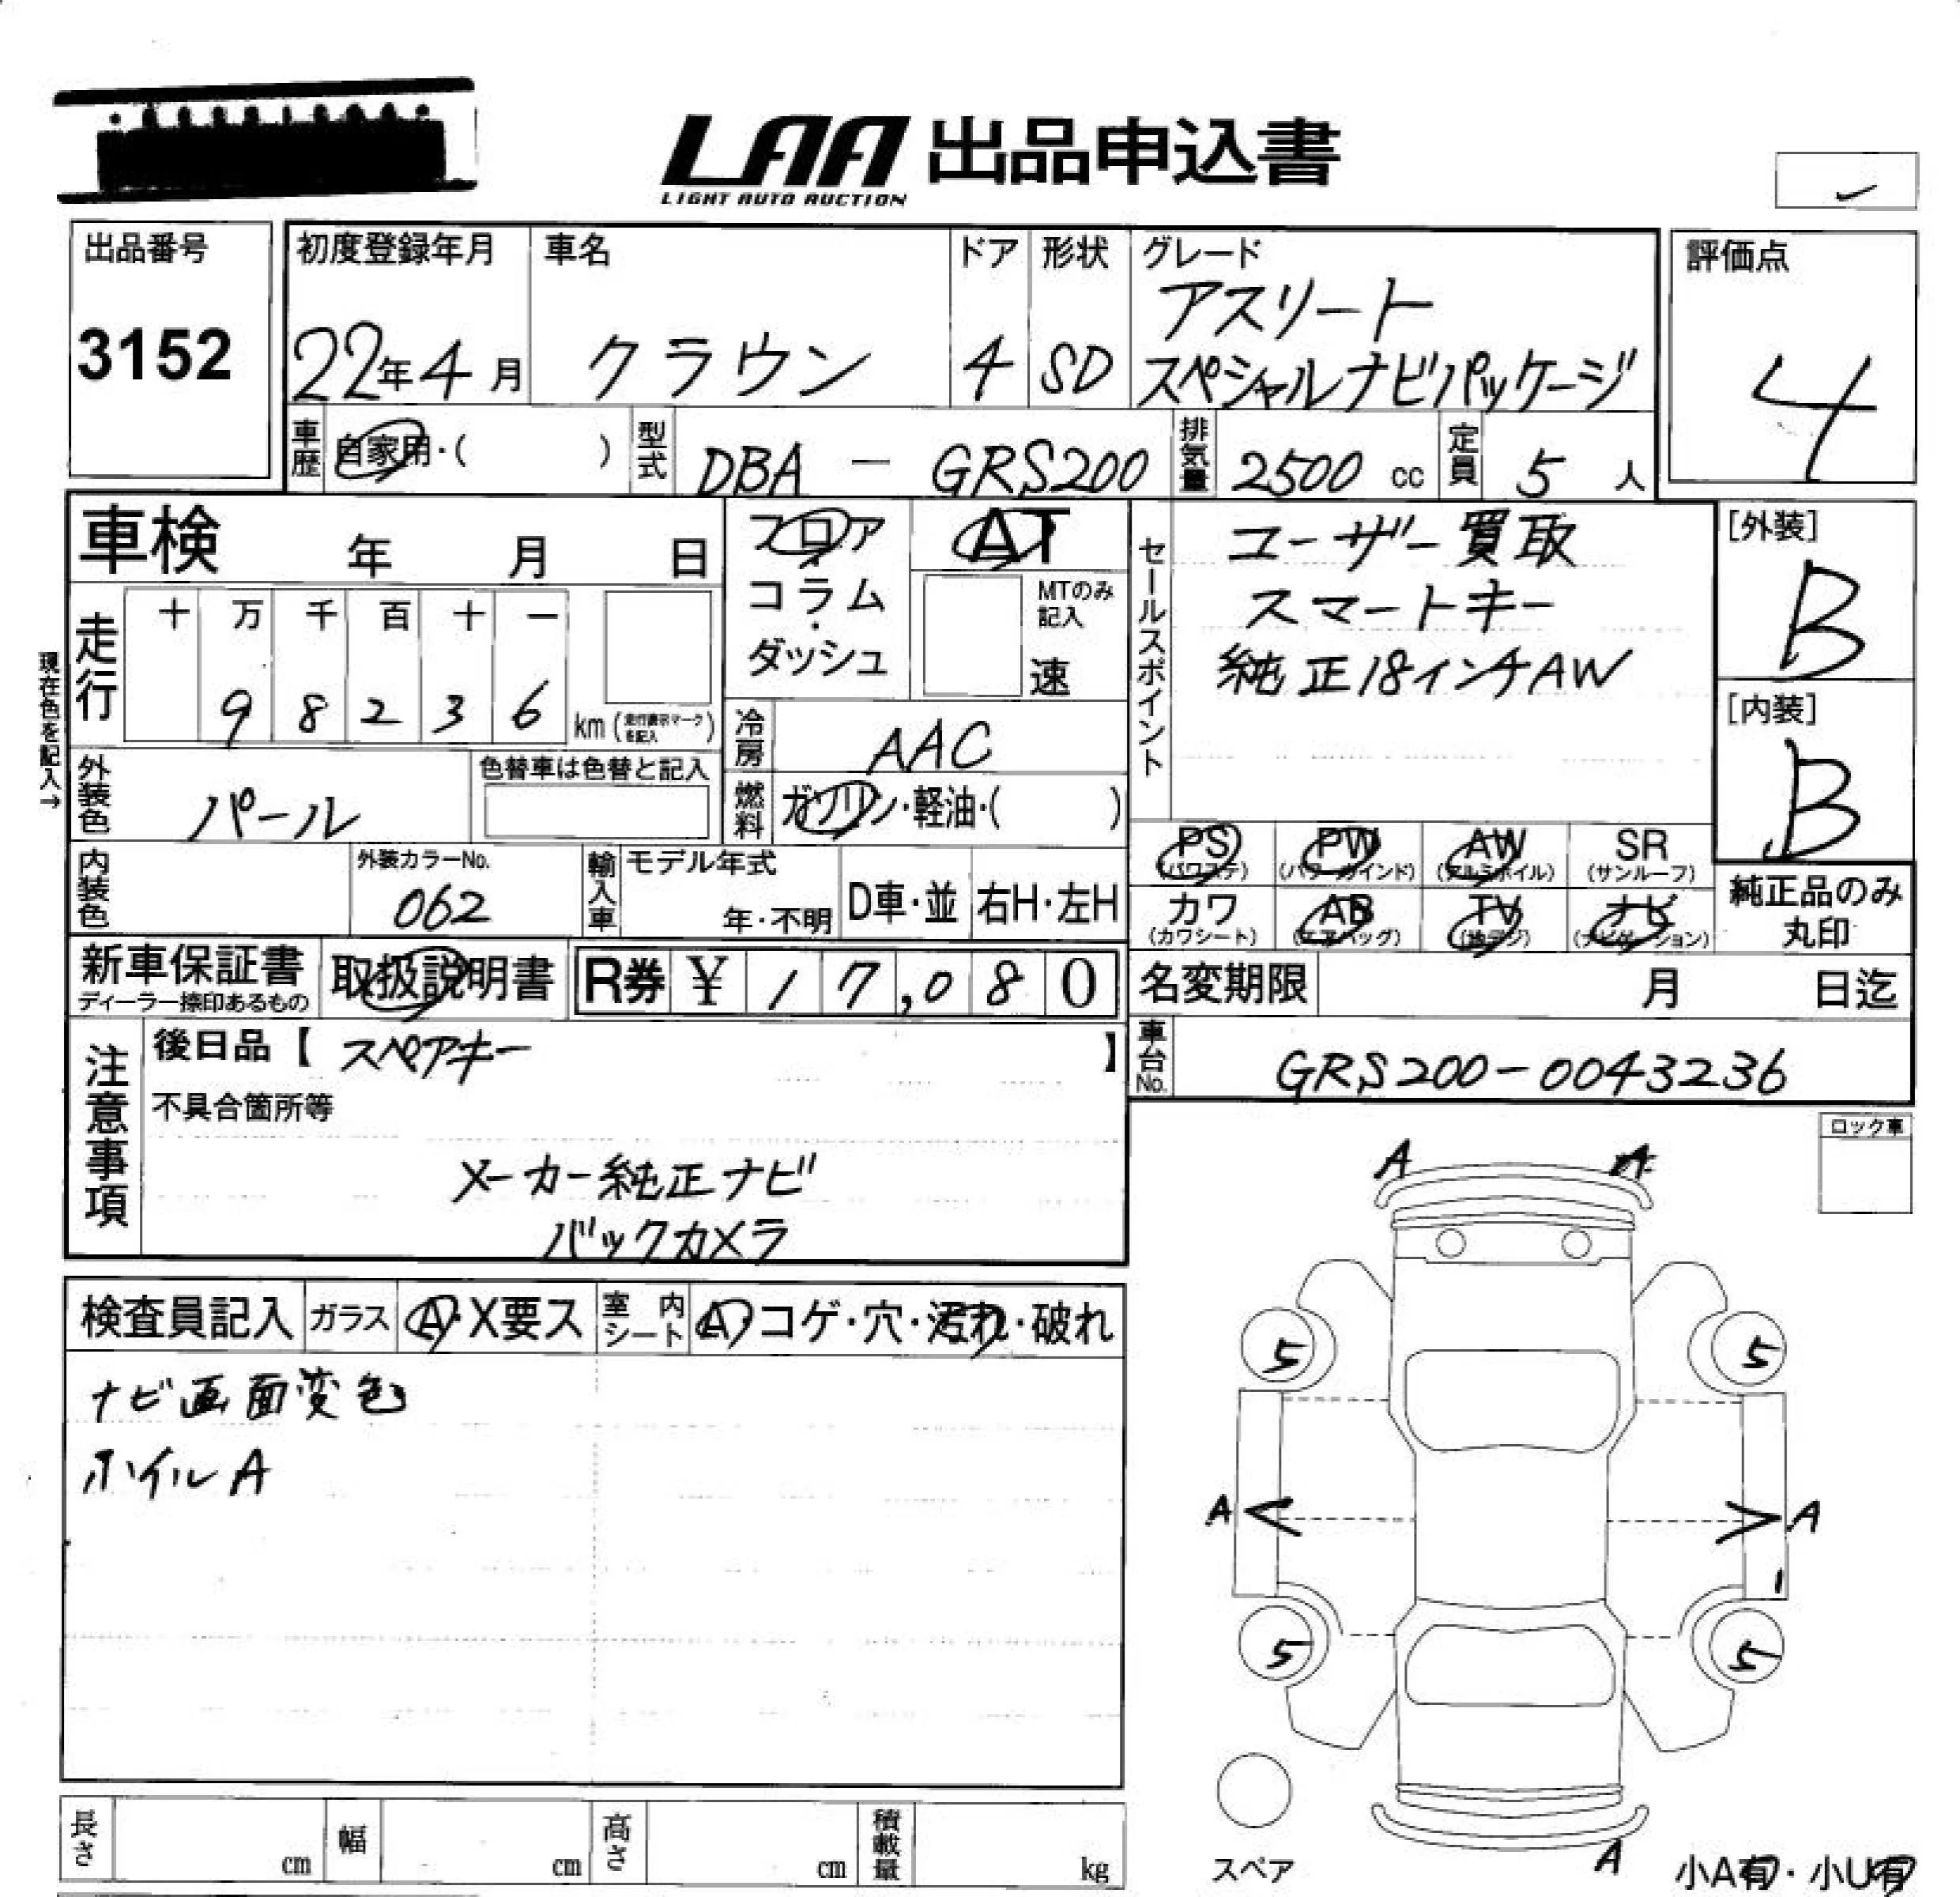 LAA 出品申込書
LIGHT AUTO AUCTION
出品番号
3152
初度登録年月
22年4月
車名
クラウン
ドア
4
形状
SD
グレード
アスリート
スペシャルナビパッケージ
評価点
4
車歴
自家用・( )
型式
DBA - GRS200
排気量
2500 cc
定員
5 人
車検 年 月 日
フロア・コラム・ダッシュ
AT
MTのみ記入
速
セールスポイント
ユーザー買取
スマートキー
純正18インチAW
[外装]
B
[内装]
B
現在色を記入→
走行
十 万 千 百 十 一
9 8 2 3 6
km (走行表示マークを記入)
冷房
AAC
外装色
パール
色替車は色替と記入
燃料
ガソリン・軽油・( )
内装色
外装カラーNo.
062
輸入車
モデル年式
年・不明
D車・並
右H・左H
PS (パワステ)
PW (パワーウインド)
AW (アルミホイル)
SR (サンルーフ)
カワ (カワシート)
AB (エアバッグ)
TV (地デジ)
ナビ (ナビゲーション)
純正品のみ丸印
新車保証書
ディーラー捺印あるもの
取扱説明書
R券 ¥ 17,080
名変期限 月 日迄
注意事項
後日品【 スペアキー 】
不具合箇所等
メーカー純正ナビ
バックカメラ
車台No.
GRS200-0043236
ロック車
検査員記入
ガラス
A・X要ス
室内シート
A・コゲ・穴・汚れ・破れ
ナビ画面変色
ホイルA
A A
5 5
A A
1
5 5
スペア
A
小A有・小U有
長さ cm
幅 cm
高さ cm
積載量 kg